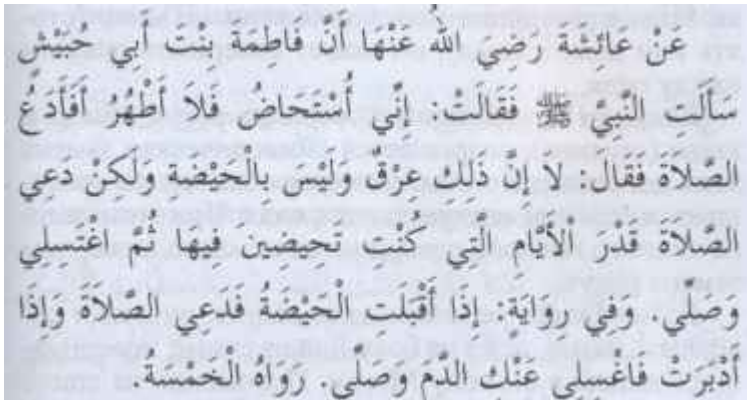 عَنْ عَائِشَةَ رَضِيَ اللهُ عَنْهَا أَنَّ فَاطِمَةَ بِنْتَ أَبِي حُبَيْشٍ
سَأَلَتِ النَّبِيَّ ﷺ فَقَالَتْ: إِنِّي أُسْتَحَاضُ فَلاَ أَطْهُرُ أَفَأَدَعُ
الصَّلاَةَ فَقَالَ: لاَ إِنَّ ذَلِكِ عِرْقٌ وَلَيْسَ بِالْحَيْضَةِ وَلَكِنْ دَعِي
الصَّلاَةَ قَدْرَ الأَيَّامِ الَّتِي كُنْتِ تَحِيضِينَ فِيهَا ثُمَّ اغْتَسِلِي
وَصَلِّي. وَفِي رِوَايَةٍ: إِذَا أَقْبَلَتِ الْحَيْضَةُ فَدَعِي الصَّلاَةَ وَإِذَا
أَدْبَرَتْ فَاغْسِلِي عَنْكِ الدَّمَ وَصَلِّي. رَوَاهُ الْخَمْسَةُ.